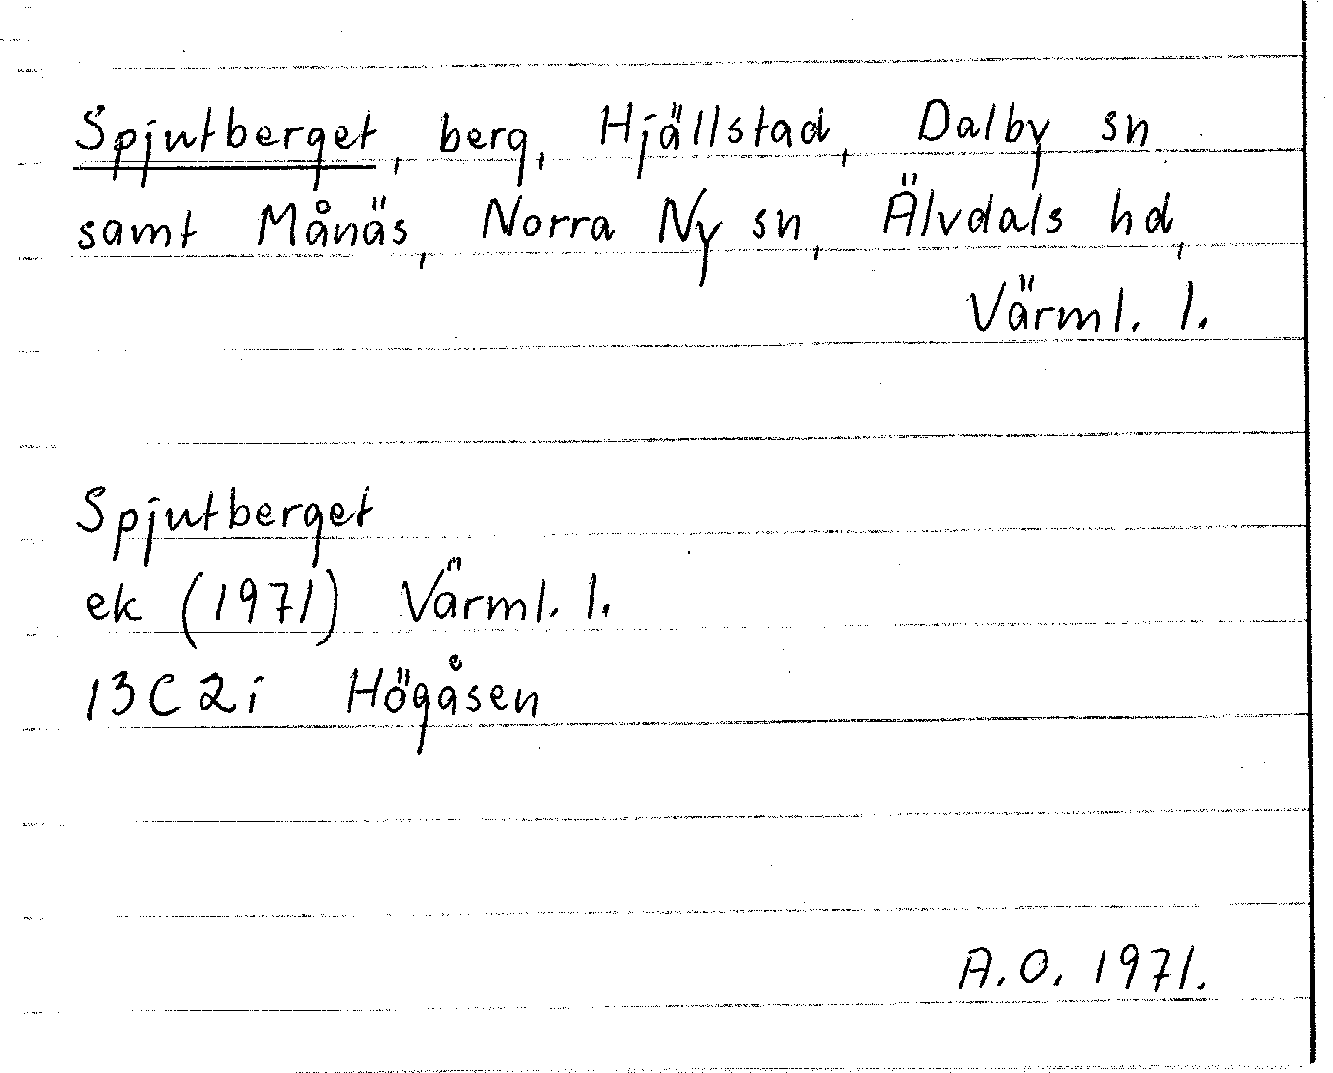 Spjutberget, berg, Hjällstad, Dalby sn
samt Månäs, Norra Ny sn, Älvdals hd,
Värml. l.
Spjutberget
ek (1971) Värml. l.
13C2i Högåsen
A.O. 1971.